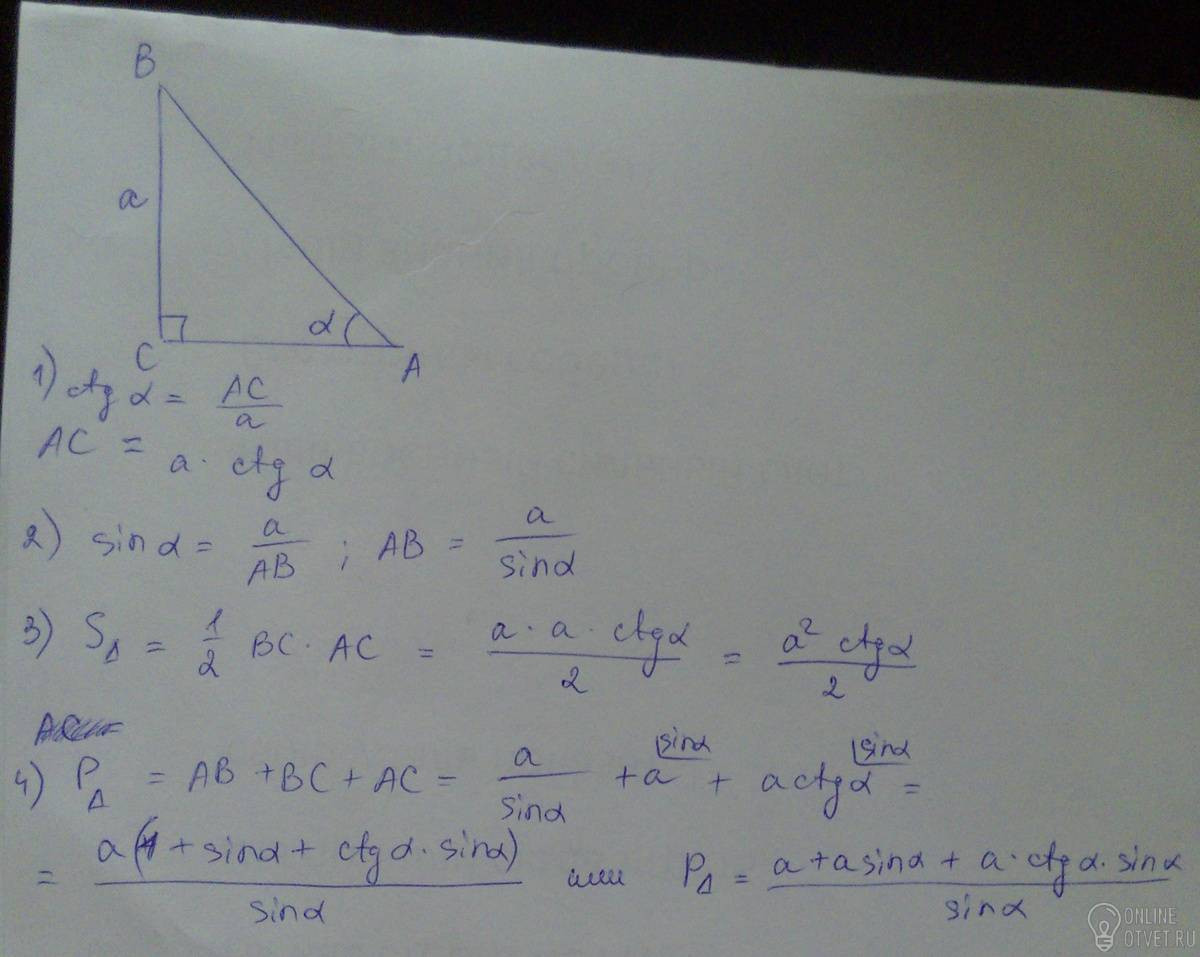 B
a
α
C
A
1) ctg α = AC/a
AC = a · ctg α
2) sin α = a/AB ; AB = a/sinα
3) S△ = 1/2 BC · AC = a · a · ctgα/2 = a² ctgα/2
4) P△ = AB + BC + AC = a/sinα + a^⌊sinα + a ctgα^⌊sinα =
= a(1 + sinα + ctgα · sinα)/sinα или P△ = a + a sinα + a · ctgα · sinα/sinα
ONLINE
OTVET.RU